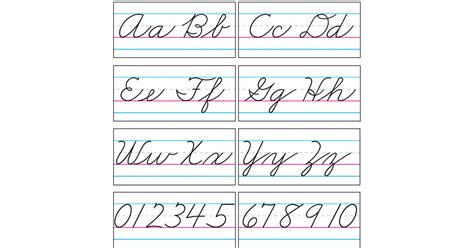 Aa Bb Cc Dd
Ee Ff Gg Hh
Ww Xx Yy Zz
012345 678910